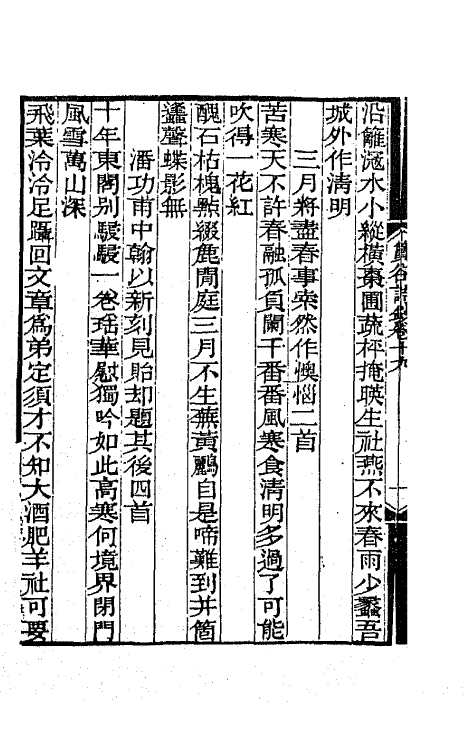 沿籬𣻉水小縱横棗圃蔬枰掩暎生社燕不來春雨少蠶吾
城外作清明
三月將盡春事索然作懊惱二首
苦寒天不許春融孤負闌干番番風寒食清明多過了可能
吹得一花紅
醜石枯槐㸃綴麄閒庭三月不生蕪黄鸝自是啼難到并箇
蠭聲蝶影無
潘功甫中翰以新刻見貽却題其後四首
十年東閣别駸駸一卷瑶華慰獨吟如此高寒何境界閉門
風雪萬山深
飛葉泠泠足躡回文章爲弟定須才不知大酒肥羊社可要
詩鈔卷十九
十